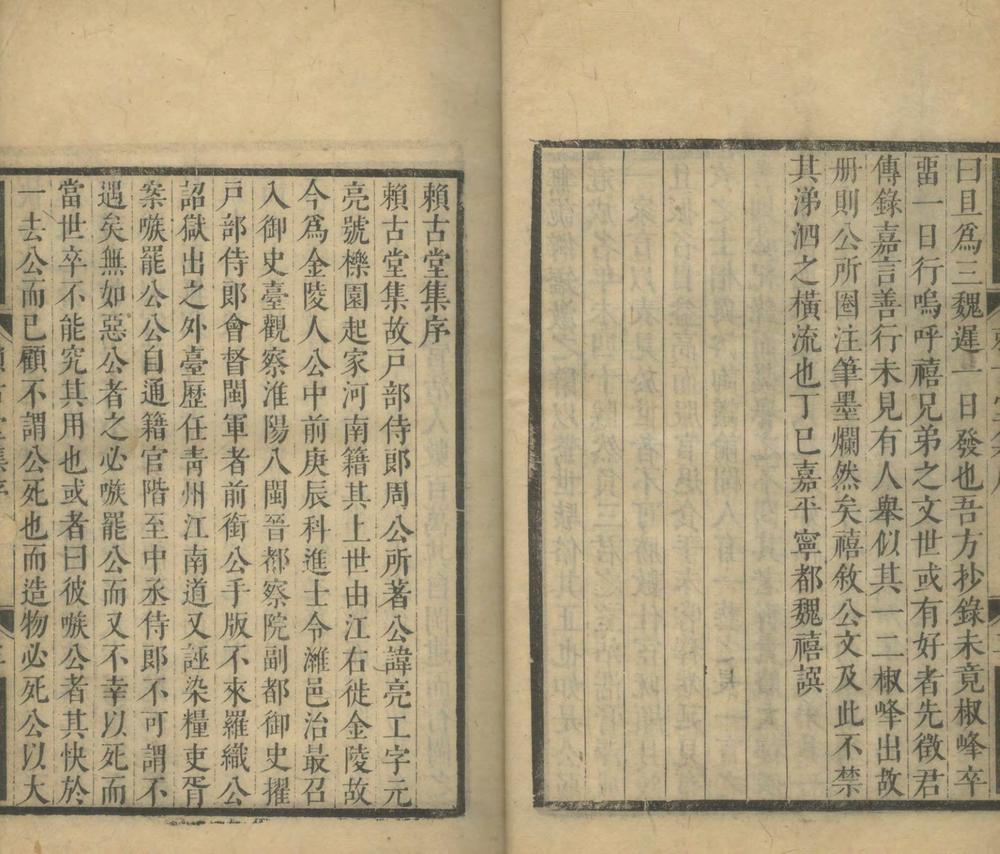 曰且爲三魏遲一日發也吾方抄錄未竟椒峰卒
畱一日行嗚呼禧兄弟之文世或有好者先徵君
傳錄嘉言善行未見有人舉似其一二椒峰出故
册則公所圈注筆墨爛然矣禧敘公文及此不禁
其涕泗之橫流也丁巳嘉平寧都魏禧譔
賴古堂集序
賴古堂集故戸部侍郎周公所著公諱亮工字元
亮號櫟園起家河南籍其上世由江右徙金陵故
今爲金陵人公中前庚辰科進士令濰邑治最召
入御史臺觀察淮陽八閩晉都察院副都御史擢
戸部侍郎會督閩軍者前銜公手版不來羅織公
詔獄出之外臺歷任靑州江南道又誣染糧吏胥
案嗾罷公公自通籍官階至中丞侍郎不可謂不
遇矣無如惡公者之必嗾罷公而又不幸以死而
當世卒不能究其用也或者曰彼嗾公者其快於
一去公而已顧不謂公死也而造物必死公以大